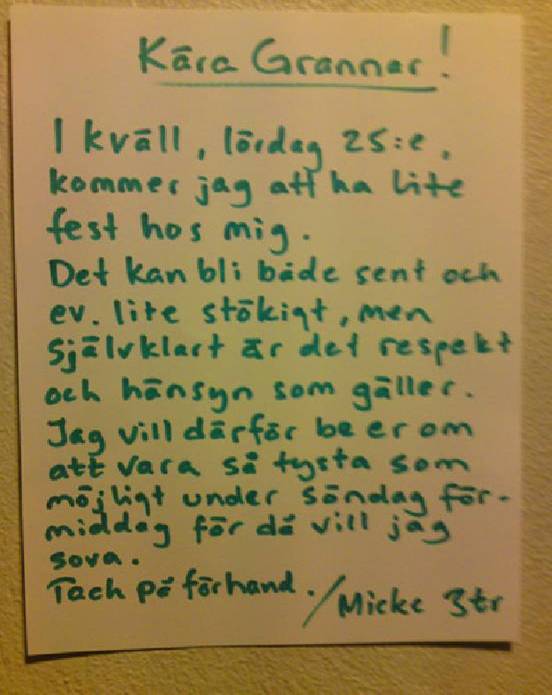 Kära Grannar!
I kväll, lördag 25:e,
kommer jag att ha lite
fest hos mig.
Det kan bli både sent och
ev. lite stökigt, men
självklart är det respekt
och hänsyn som gäller.
Jag vill därför be er om
att vara så tysta som
möjligt under söndag för-
middag för då vill jag
sova.
Tack på förhand. /Micke 3tr